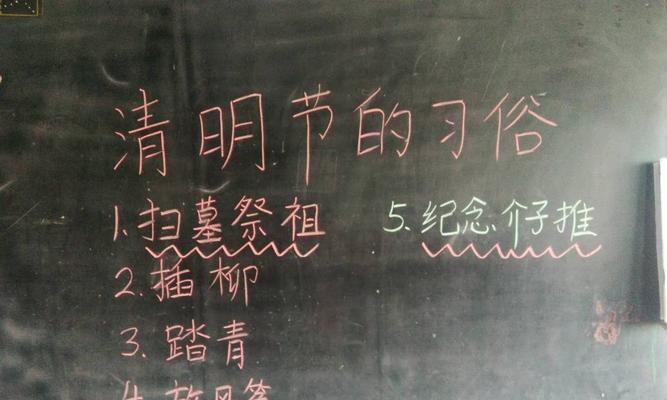 清明节的习俗
1.扫墓祭祖
2.插柳
3.踏青
4.放风筝
5.纪念介子推